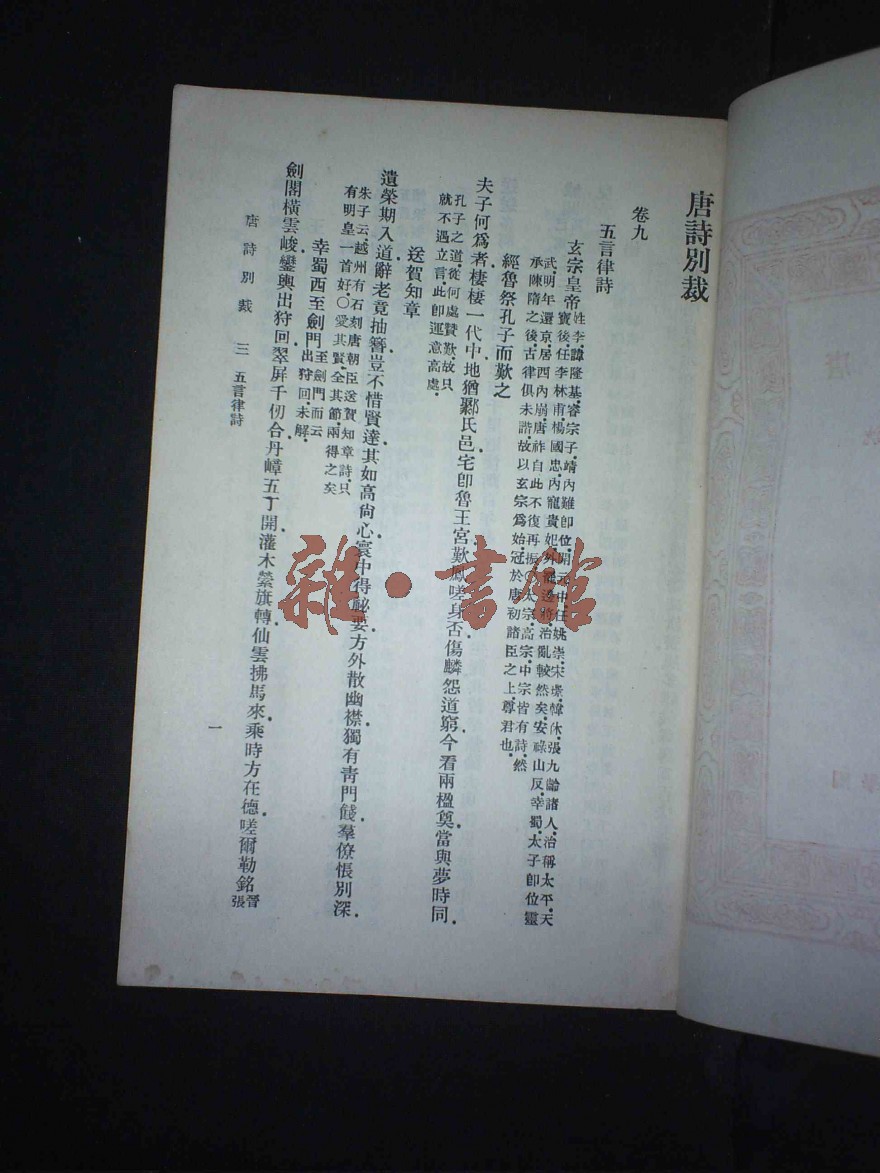 唐詩別裁
卷九
五言律詩
玄宗皇帝姓李諱隆基.睿宗子.靖內難卽位.開元中.任姚崇.宋璟.韓休.張九齡諸人.治稱太平.天
寶後.任李林甫.楊國忠.內寵貴妃.外寵邊將.治亂較然矣.安祿山反.幸蜀.太子卽位靈
武.明年還京.居西內崩.唐祚自此不復再振○太宗.高宗.中宗皆有詩.然
承陳隋之後.古律俱未諧.故以玄宗爲始.冠於唐初諸臣之上.尊君也.
經魯祭孔子而歎之
夫子何爲者棲棲一代中.地猶鄹氏邑宅卽魯王宮.歎鳳嗟身否傷麟怨道窮.今看兩楹奠當與夢時同.
孔子之道.從何處贊歎.故只
就不遇立言.此卽運意高處.
送賀知章
遺榮期入道辭老竟抽簪.豈不惜賢達其如高尙心.寰中得祕要方外散幽襟.獨有靑門餞羣僚悵別深.
朱子云.越州有石刻唐朝臣送賀知章詩.只
有明皇一首好○愛其賢.全其節.兩得之矣
幸蜀西至劍門至劍門而云
出狩回.未解.
劍閣橫雲峻鑾輿出狩回.翠屏千仞合丹嶂五丁開.灌木縈旗轉仙雲拂馬來.乘時方在德嗟爾勒銘晉
張
唐詩別裁 三 五言律詩
一
雜·書館